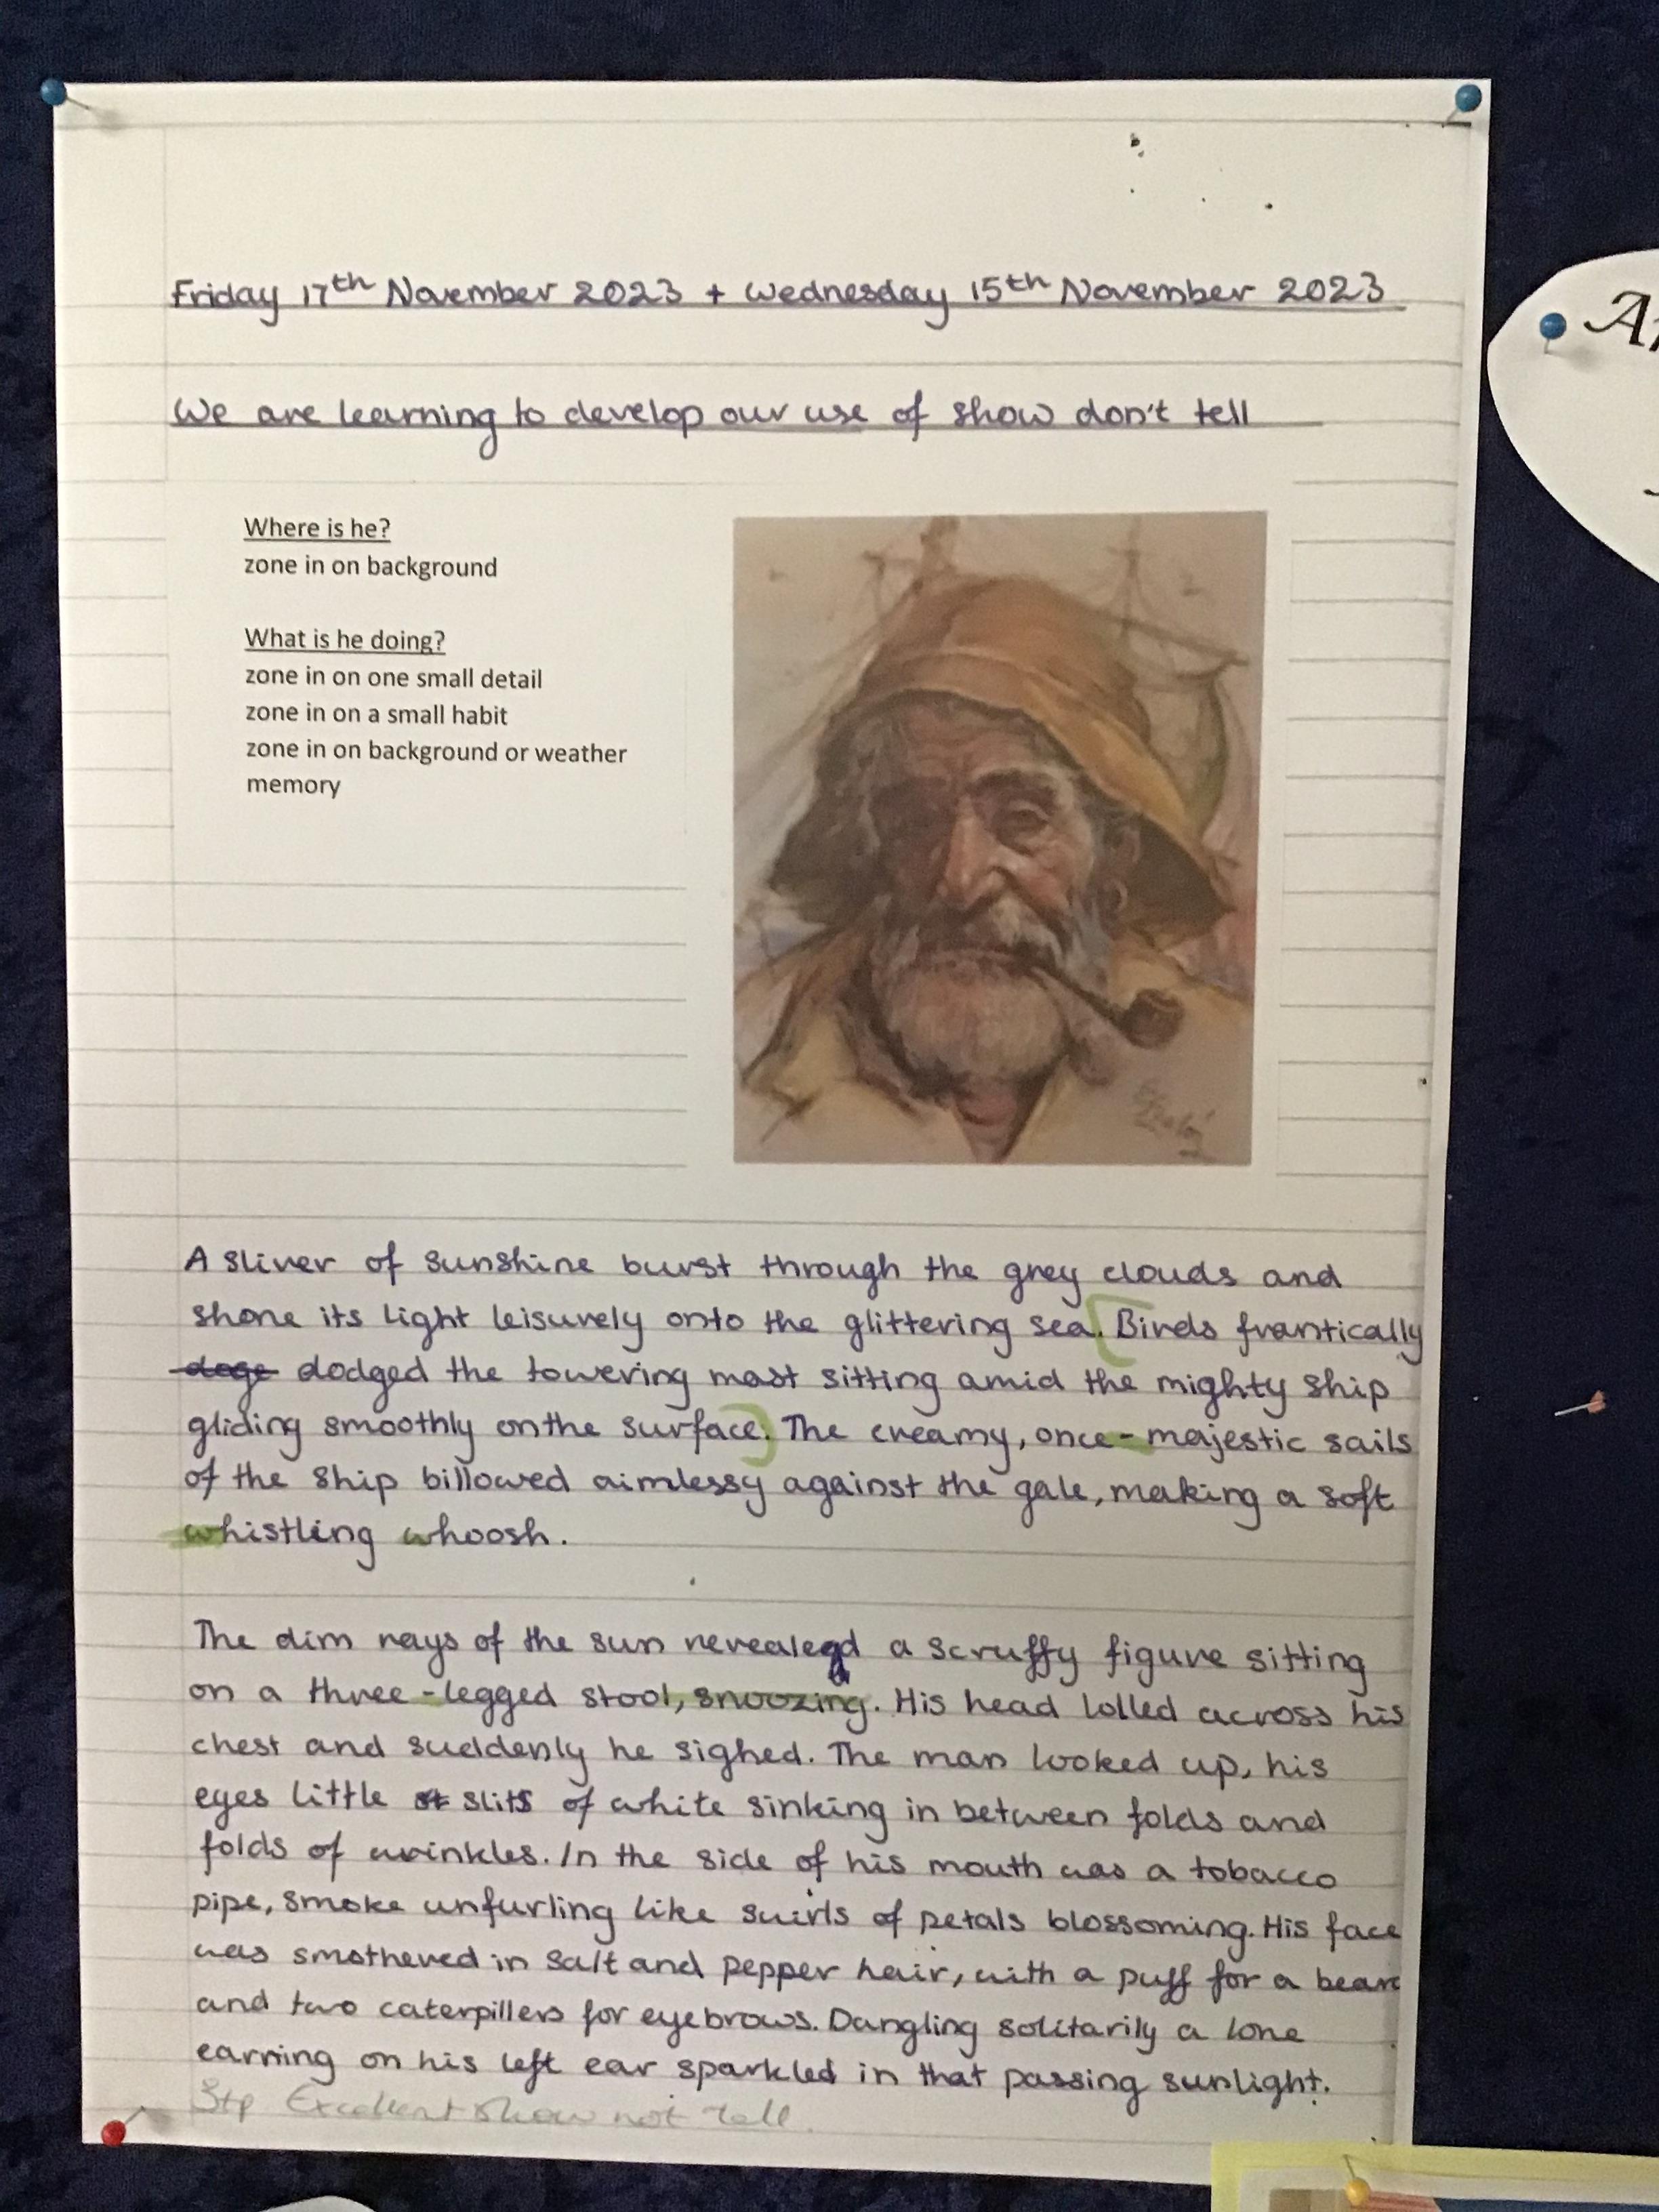 Friday 17th November 2023 + Wednesday 15th November 2023
We are learning to develop our use of show don't tell
Where is he?
zone in on background
What is he doing?
zone in on one small detail
zone in on a small habit
zone in on background or weather
memory
A sliver of sunshine burst through the grey clouds and
shone its light leisurely onto the glittering sea. Birds frantically
doge dodged the towering mast sitting amid the mighty ship
gliding smoothly on the surface. The creamy, once-majestic sails
of the ship billowed aimlessy against the gale, making a soft
whistling whoosh.
The dim rays of the sun revealed a scruffy figure sitting
on a three-legged stool, snoozing. His head lolled across his
chest and suddenly he sighed. The man looked up, his
eyes little slits of white sinking in between folds and
folds of wrinkles. In the side of his mouth was a tobacco
pipe, smoke unfurling like swirls of petals blossoming. His face
was smothered in salt and pepper hair, with a puff for a beard
and two caterpillers for eyebrows. Dangling solitarily a lone
earring on his left ear sparkled in that passing sunlight.
Excellent show not tell